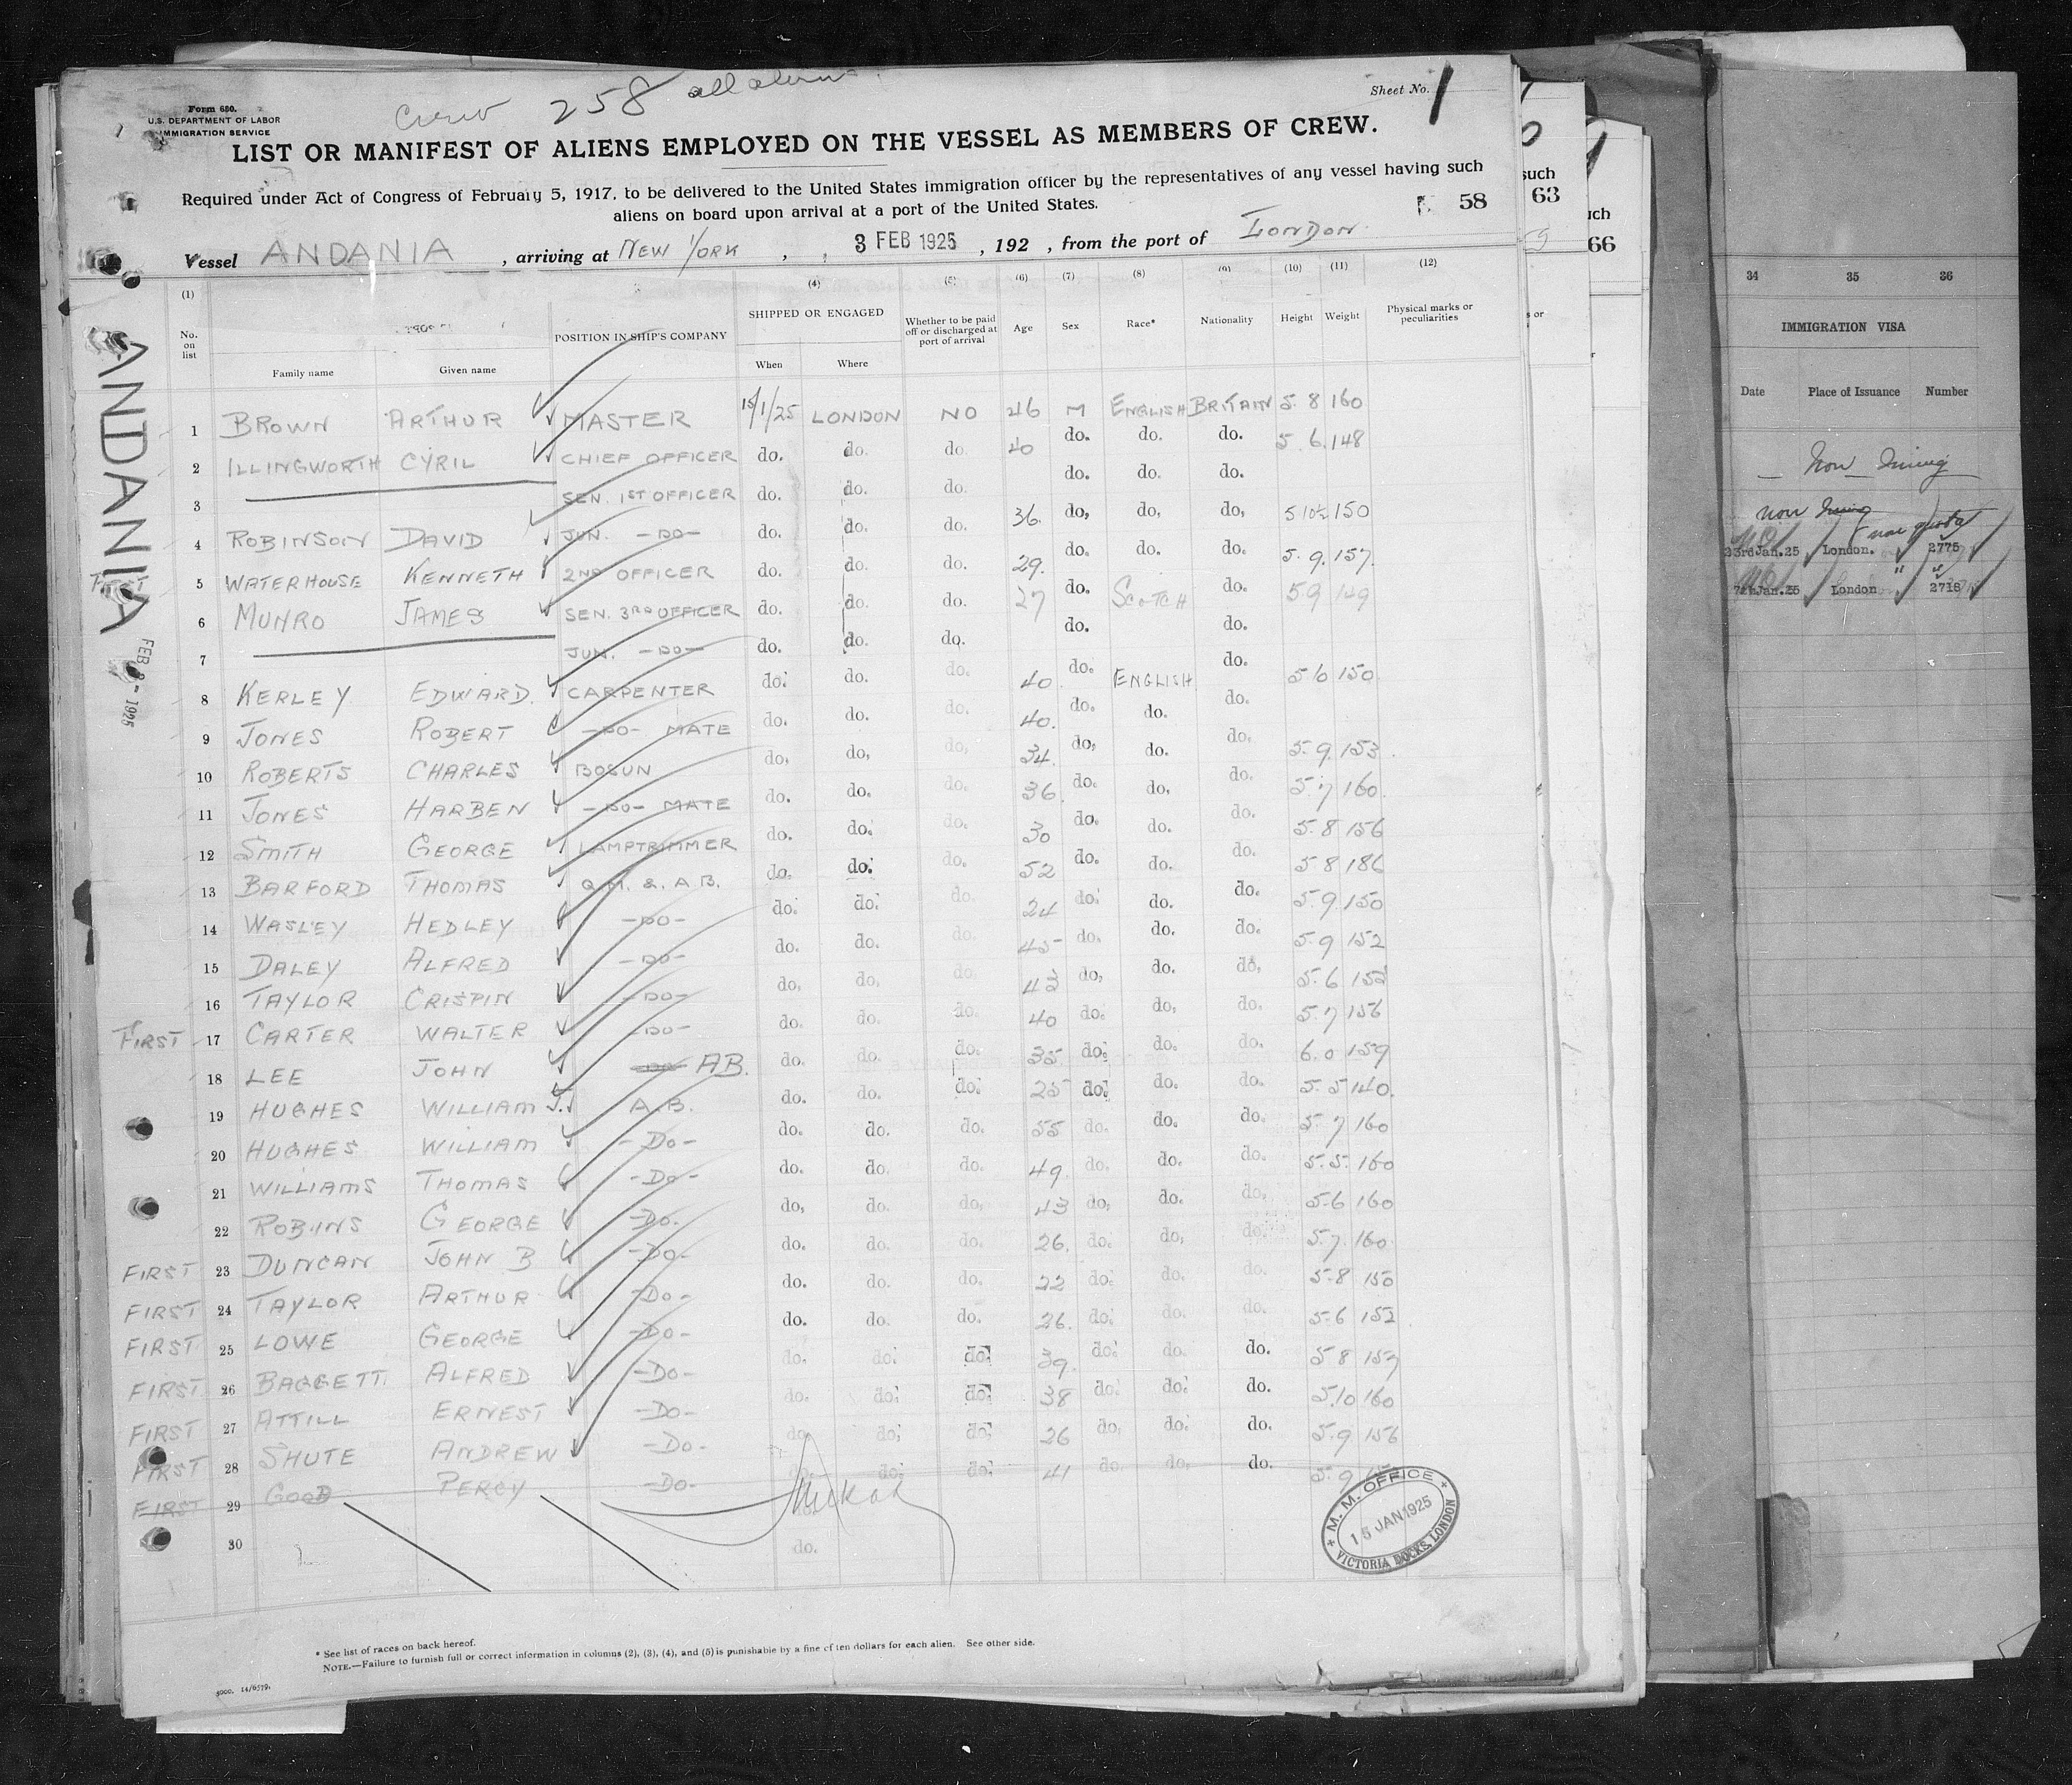 Crew 258 all aliens
Form 680.
U.S. DEPARTMENT OF LABOR
IMMIGRATION SERVICE
Sheet No. 1
LIST OR MANIFEST OF ALIENS EMPLOYED ON THE VESSEL AS MEMBERS OF CREW.
Required under Act of Congress of February 5, 1917, to be delivered to the United States immigration officer by the representatives of any vessel having such
aliens on board upon arrival at a port of the United States.
58
Vessel ANDANIA, arriving at NEW YORK, 3 FEB 1925, 192 , from the port of LONDON.
(1) (4) (5) (6) (7) (8) (9) (10) (11) (12)
No. on list Family name Given name POSITION IN SHIP'S COMPANY SHIPPED OR ENGAGED When Where Whether to be paid off or discharged at port of arrival Age Sex Race* Nationality Height Weight Physical marks or peculiarities
ANDANIA
FEB 3-1925
1 BROWN ARTHUR MASTER 15/1/25 LONDON NO 46 M ENGLISH BRITAIN 5.8 160
2 ILLINGWORTH CYRIL CHIEF OFFICER do. do. do. 40 do. do. do. 5.6. 148
3 SEN. 1ST OFFICER do. do. do. do. do. do.
4 ROBINSON DAVID JUN. -DO- do. do. do. 36. do. do. do. 5 10½ 150
5 WATERHOUSE KENNETH 2ND OFFICER do. do. do. 29. do. do. do. 5.9. 157.
6 MUNRO JAMES SEN. 3RD OFFICER do. do. do. 27 do. SCOTCH do. 5 9 149
7 JUN. -DO- do. do. do. do. do.
8 KERLEY EDWARD. CARPENTER do. do. do. 40 do. ENGLISH do. 5 6 150
9 JONES ROBERT -DO- MATE do. do. do. 40. do. do. do.
10 ROBERTS CHARLES BOSUN do. do. do. 34. do. do. do. 5.9. 153
11 JONES HARBEN -DO- MATE do. do. do. 36 do. do. do. 5.7 160.
12 SMITH GEORGE LAMPTRIMMER do. do. do. 30 do. do. do. 5.8 156
13 BARFORD THOMAS Q.M. & A.B. do. do. do. 52 do. do. do. 5 8 186
14 WASLEY HEDLEY -DO- do. do. do. 24 do. do. do. 5.9. 150
15 DALEY ALFRED -DO- do. do. do. 45 do. do. do. 5.9 152
16 TAYLOR CRISPIN -DO- do. do. do. 43 do. do. do. 5.6 152
FIRST 17 CARTER WALTER -DO- do. do. do. 40 do. do. do. 5.7 156
18 LEE JOHN A.B. do. do. do. 35 do. do. do. 6.0 159
19 HUGHES WILLIAM J. A.B. do. do. do. 25 do. do. do. 5.5 140.
20 HUGHES WILLIAM -DO- do. do. do. 55 do. do. do. 5.7 160
21 WILLIAMS THOMAS -DO- do. do. do. 49. do. do. do. 5.5. 160
22 ROBINS GEORGE -DO- do. do. do. 43 do. do. do. 5.6 160
FIRST 23 DUNCAN JOHN B -DO- do. do. do. 26. do. do. do. 5.7. 160
FIRST 24 TAYLOR ARTHUR -DO- do. do. do. 22 do. do. do. 5.8 150
FIRST 25 LOWE GEORGE -DO- do. do. do. 26. do. do. do. 5.6 152
FIRST 26 BAGGETT. ALFRED -DO- do. do. do. 39. do. do. do. 5 8 157
FIRST 27 ATTILL ERNEST -DO- do. do. do. 38 do. do. do. 5.10 160
FIRST 28 SHUTE ANDREW -DO- do. do. do. 26 do. do. do. 5.9 156
FIRST 29 GOOD PERCY -DO- do. do. do. 41 do. do. do. 5.9
30 do.
M. M. OFFICE
15 JAN 1925
VICTORIA DOCKS, LONDON
* See list of races on back hereof.
NOTE.—Failure to furnish full or correct information in columns (2), (3), (4), and (5) is punishable by a fine of ten dollars for each alien. See other side.
such
63
uch
66
34 35 36
IMMIGRATION VISA
Date Place of Issuance Number
23rd Jan. 25 London. 2775
Jan. 25 London 2716